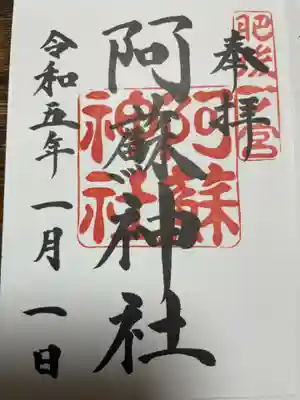 肥後一之宮
奉拝
阿蘇神社
阿蘇
神社
令和五年一月一日